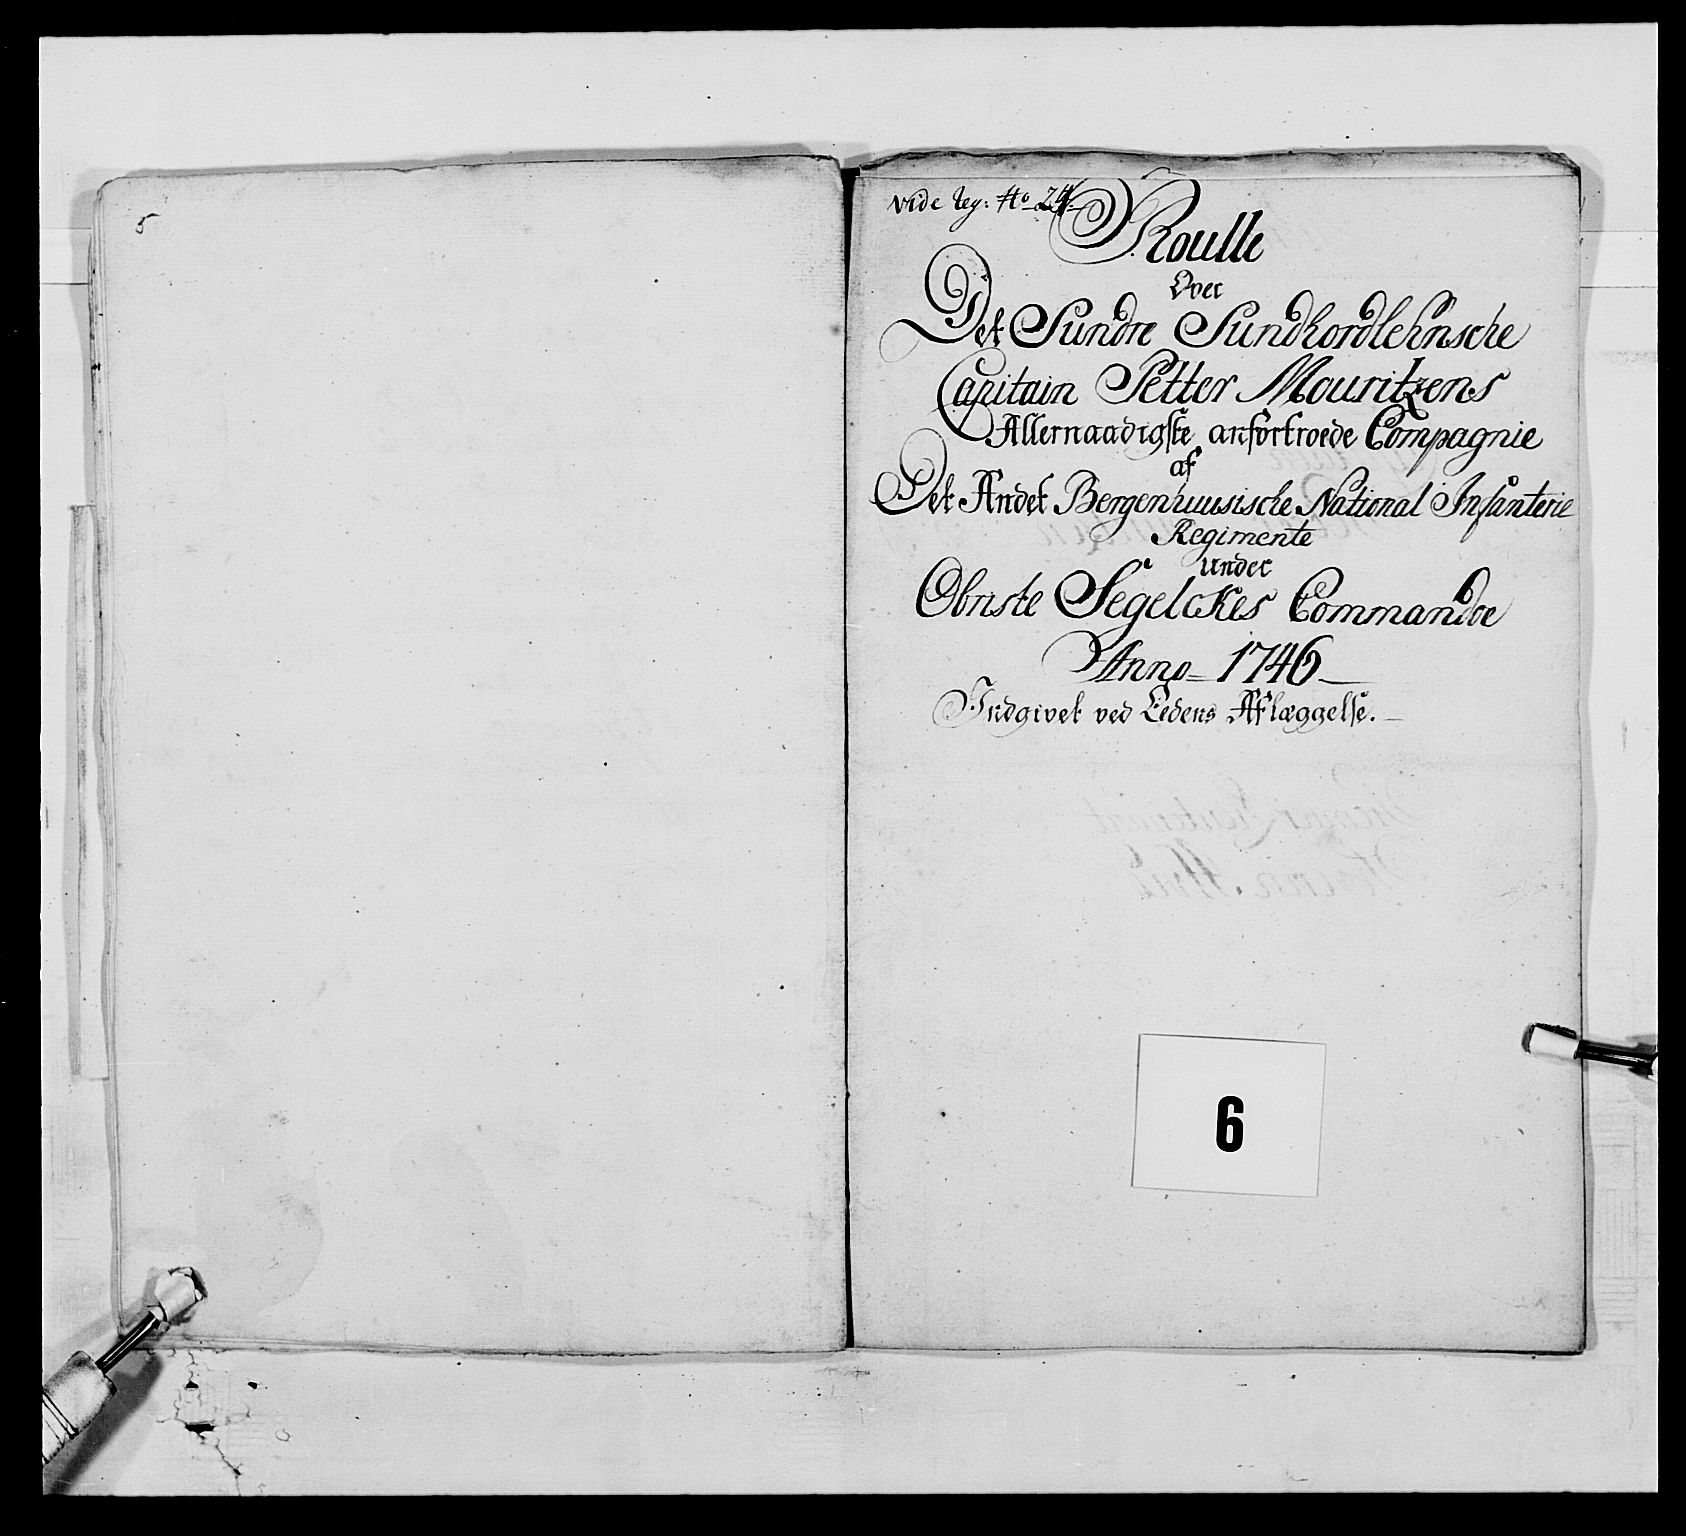 5
vide reg: No 24
Roulle
Over
Det Sundre Sundhordlehnsche
Capitain Petter Mouritzens
Allernaadigste anfortroede Compagnie
af
Det Andet Bergenhuusische National Infanterie
Regimente
under
Obriste Segelckes Commandoe
Anno 1746
Indgivet ved Eedens Aflæggelse.
6